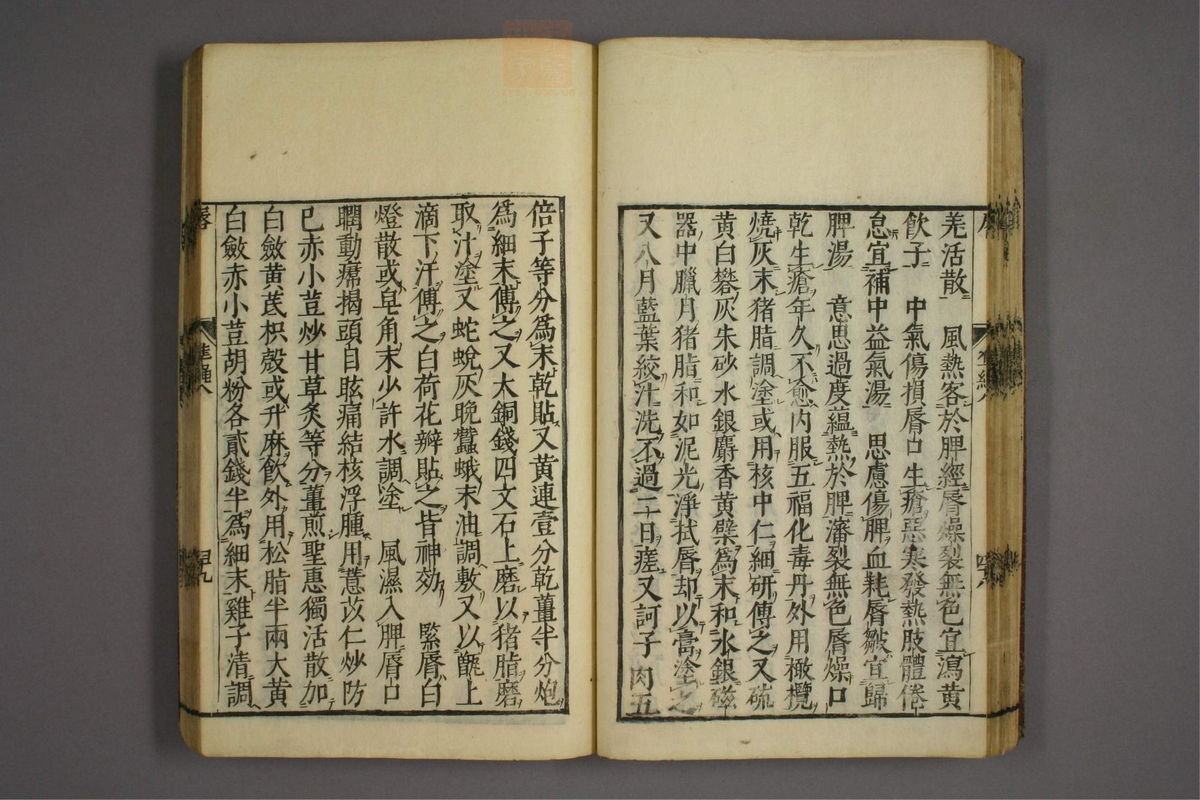 羌活散　風熱客於脾經唇燥裂無色宜瀉黄
飲子　中氣傷損唇口生瘡惡寒發熱肢體倦
怠宜補中益氣湯　思慮傷脾血耗唇皺宜歸
脾湯　意思過度蘊熱於脾瀋裂無色唇燥口
乾生瘡年久不愈内服五福化毒丹外用橄欖
燒灰末猪脂調塗或用核中仁細研傅之又硫
黄白礬灰朱砂水銀麝香黄檗為末和水銀磁
器中臘月猪脂和如泥光淨拭唇却以膏塗之
又八月藍葉絞汁洗不過二十日瘥又訶子肉五
倍子等分為末乾貼又黄連壹分乾薑半分炮
為細末傅之又大銅錢四文石上磨以猪脂磨
取汁塗又蛇蛻灰晚蠶蛾末油調敷又以甑上
滴下汗傅之白荷花瓣貼之皆神効　緊唇白
燈散或皂角末少許水調塗　風濕入脾唇口
瞤動㿏揭頭目眩痛結核浮腫用薏苡仁炒防
已赤小荳炒甘草炙等分薑煎聖惠獨活散加
白斂黄芪枳殻或升麻飲外用松脂半兩大黄
白斂赤小荳胡粉各貳錢半為細末雞子清調
唇
四九